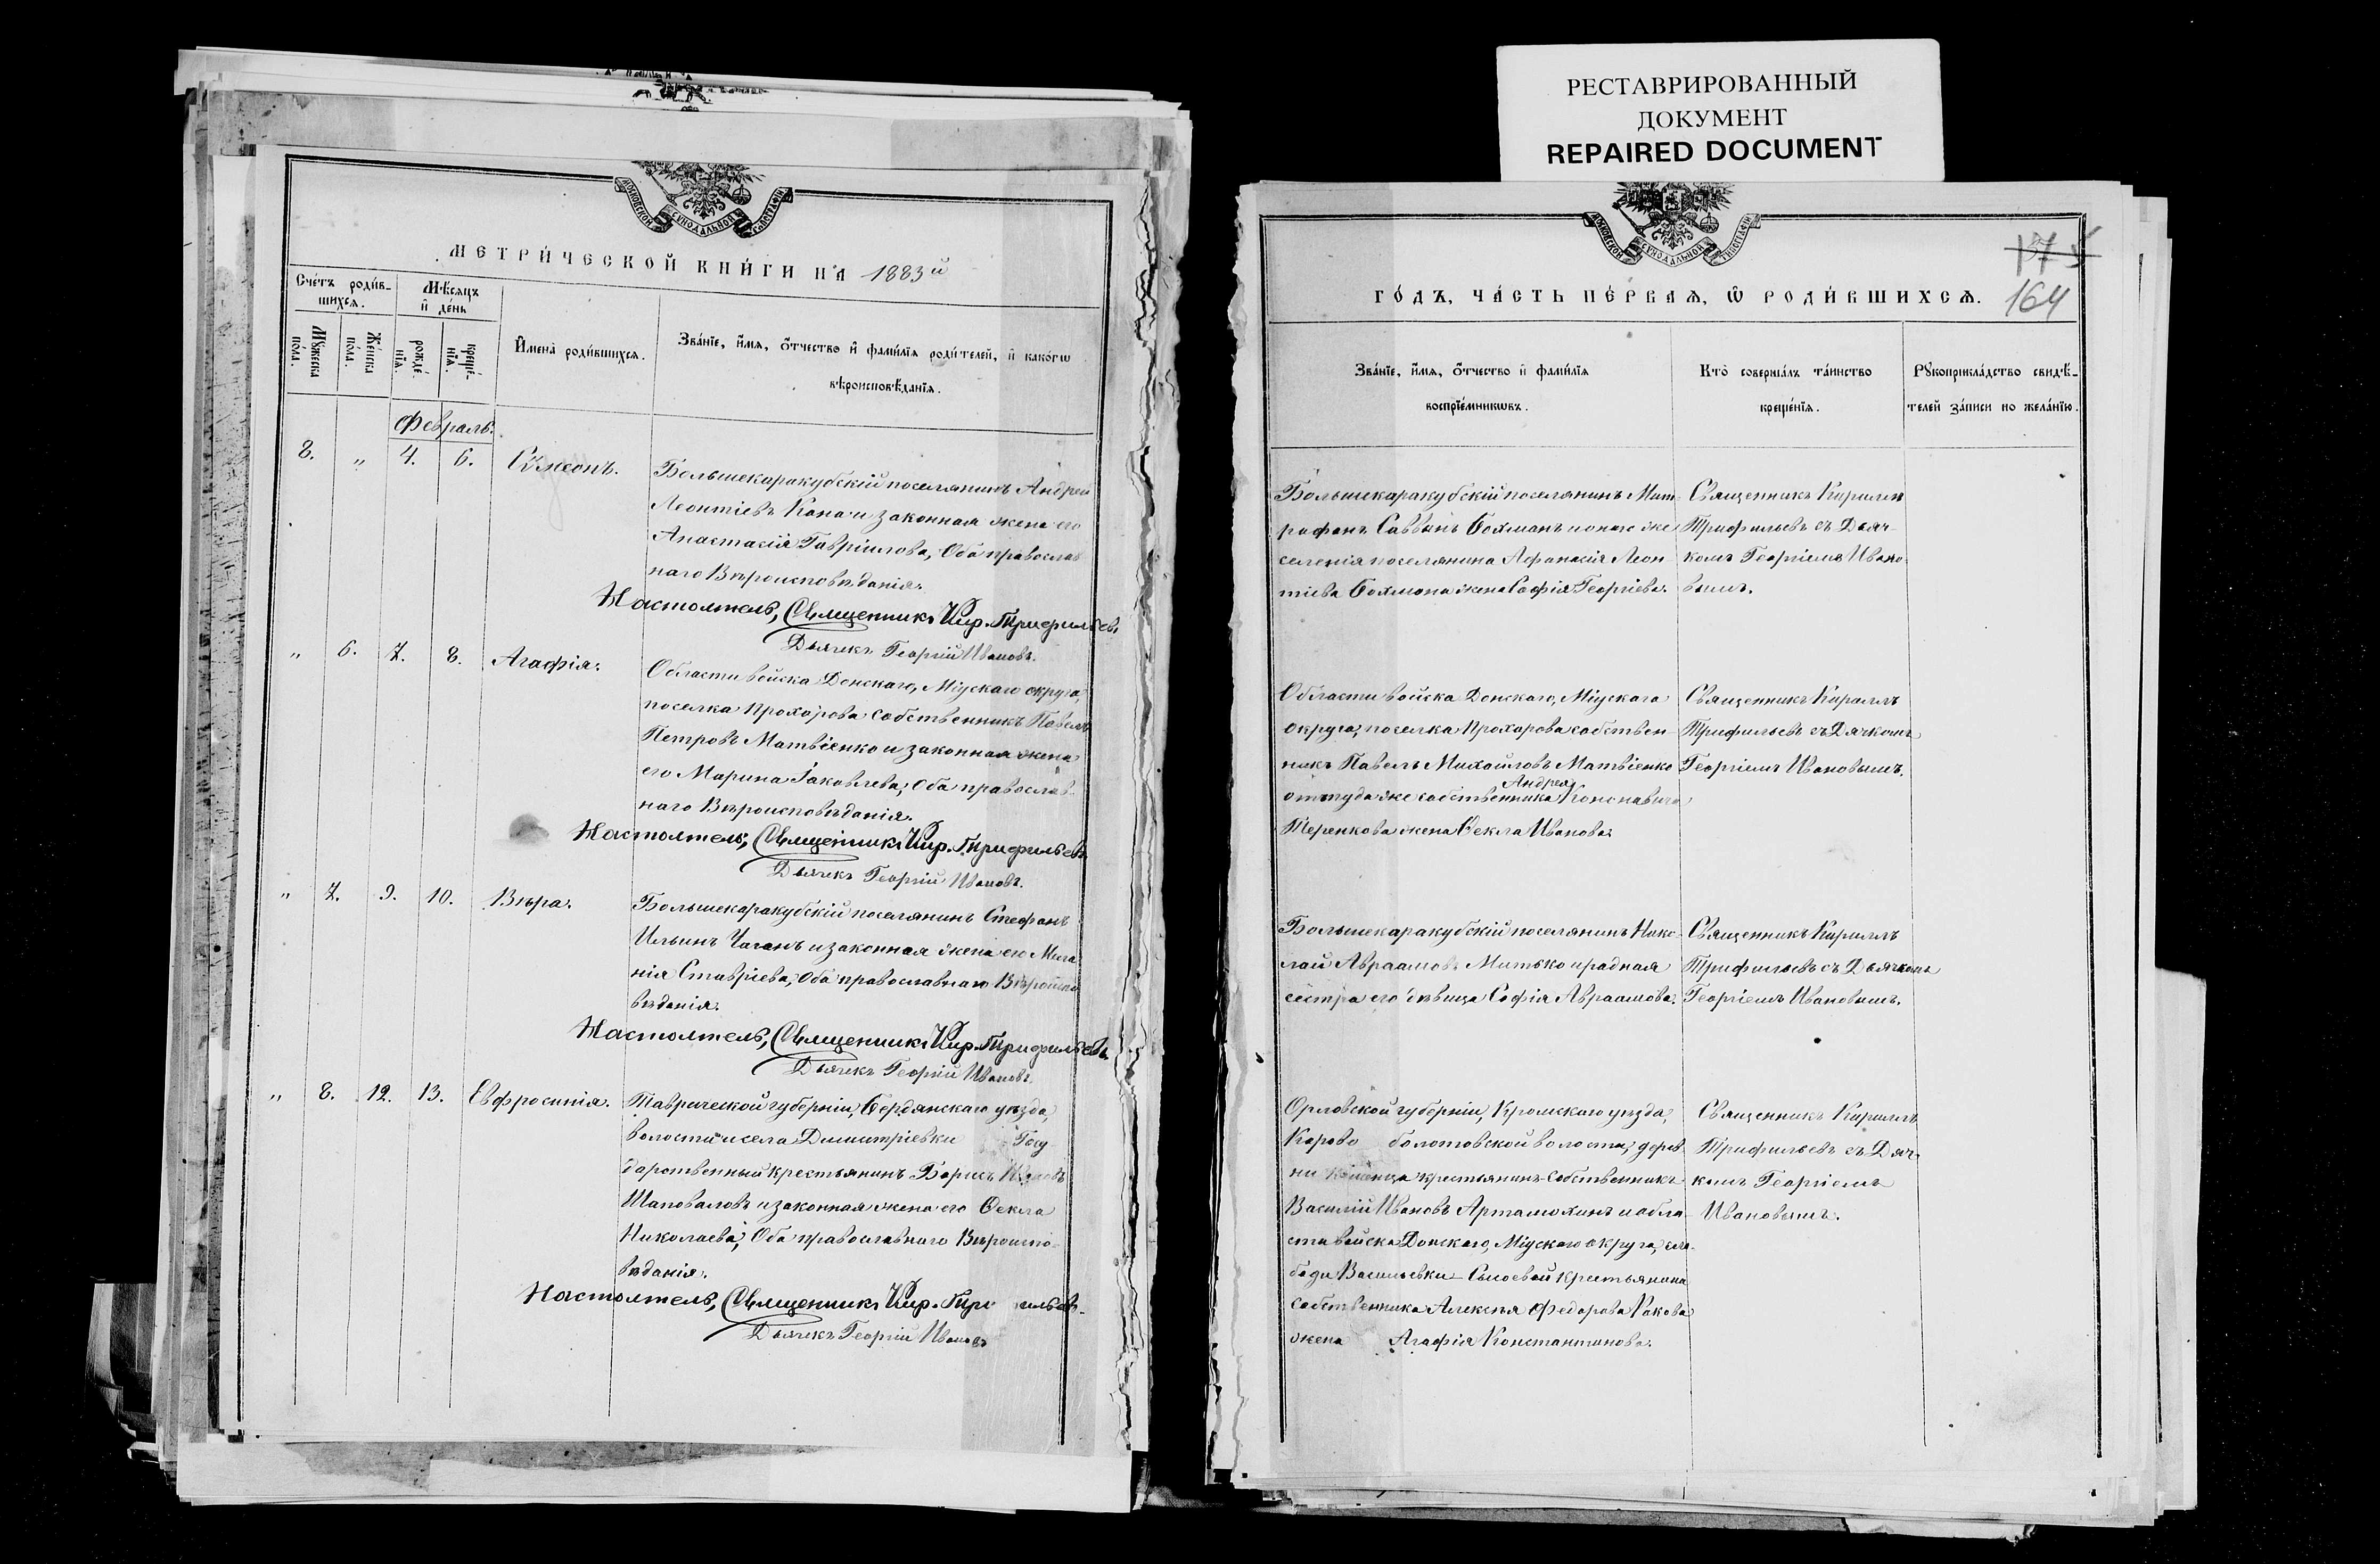 РЕСТАВРИРОВАННЫЙ
ДОКУМЕНТ
REPAIRED DOCUMENT
МОСКОВСКОЙ СѴНОДАЛЬНОЙ ТИПОГРАФІИ
МЕТРИ́ЧЕСКОЙ КНИ́ГИ НА 1883й
Счетъ роди́в-
шихся.
Мѣсяцъ
и҆ де́нь
Мꙋжеска
по́ла.
Же́нска
по́ла.
рожде́-
нїѧ.
креще́-
нїѧ.
И҆мена̀ роди́вшихсѧ.
Зва́нїе, и҆́мѧ, ѻ҆́тчество и҆ фами́лїѧ роди́телей, и҆ како́гѡ
вѣроисповѣ́данїѧ.
Февраль.
8. „ 4. 6. Сѵмеонъ.
Большекаракубскій поселянинъ Андрей
Леонтіевъ Кана и законная жена его
Анастасія Гавріилова, Оба православ
наго Вѣроисповѣданія.
Настоятель, Священникъ Кир. Трифильевъ
Дьячекъ Георгій Ивановъ.
„ 6. 7. 8. Агафія.
Области войска Донскаго, Міускаго округа,
поселка Прохорова собственникъ Павелъ
Петровъ Матвіенко и законная жена
его Марина Іаковлева, Оба православ-
наго Вѣроисповѣданія.
Настоятель, Священникъ Кир. Трифильевъ
Дьячекъ Георгій Ивановъ.
„ 7. 9. 10. Вѣра.
Большекаракубскій поселянинъ Стефанъ
Ильинъ Чаганъ и законная жена его Мела
нія Ставріева, Оба православнаго Вѣроиспо
вѣданія.
Настоятель, Священникъ Кир. Трифильевъ
Дьячекъ Георгій Ивановъ.
„ 8. 12. 13. Евфросинія.
Таврической губерніи, Бердянскаго уѣзда,
волости и села Димитріевки Госу
дарственный крестьянинъ Борисъ
Шаповаловъ и законная жена его Ѳекла
Николаева, Оба православнаго Вѣроиспо-
вѣданія.
Настоятель, Священникъ Кир. Три ильевъ.
Дьячекъ Георгій Ивановъ
МОСКОВСКОЙ СѴНОДАЛЬНОЙ ТИПОГРАФІИ
164
ГО́ДЪ, ЧА́СТЬ ПЕ́РВАѦ, Ѡ҆ РОДИ́ВШИХСѦ.
Зва́нїе, и҆́мѧ, ѻ҆́тчество и҆ фами́лїѧ
воспрїе́мникѡвъ.
Кто̀ соверша́лъ та́инство
креще́нїѧ.
Рꙋкоприкла́дство свидѣ́-
телей за́писи по жела́нїю.
Большекаракубскій поселянинъ Мит-
рофанъ Саввинъ Бохманъ и онаго же
селенія поселянина Афанасія Леон-
тіева Бохмана жена Софія Георгіева.
Священникъ Кириллъ
Трифильевъ съ Дьяч-
комъ Георгіемъ Ивано-
вымъ.
Области войска Донскаго, Міускаго
округа, поселка Прохорова собствен-
никъ Павелъ Михайловъ Матвіенко
Андрея
оттуда же собственника
Теренкова жена Ѳекла Иванова.
Священникъ Кириллъ
Трифильевъ съ Дячкомъ
Георгіемъ Ивановымъ.
Большекаракубскій поселянинъ Нико-
лай Авраамовъ Митько и родная
сестра его дѣвица Софія Авраамова.
Священникъ Кириллъ
Трифильевъ съ Дьячкомъ
Георгіемъ Ивановымъ.
Орловской губерніи, Кромскаго уѣзда,
Корово болотовской волости, дерев
ни крестьянинъ-Собственникъ
Василій Ивановъ Артамохинъ и обла-
сти войска Донскаго, Міускаго округа, сло-
боды Васильевки- крестьянина
Собственника Алексѣя Федорова Ракова
жена Агафія Константинова.
Священникъ Кириллъ
Трифильевъ съ Дяч-
комъ Георгіемъ
Ивановымъ.